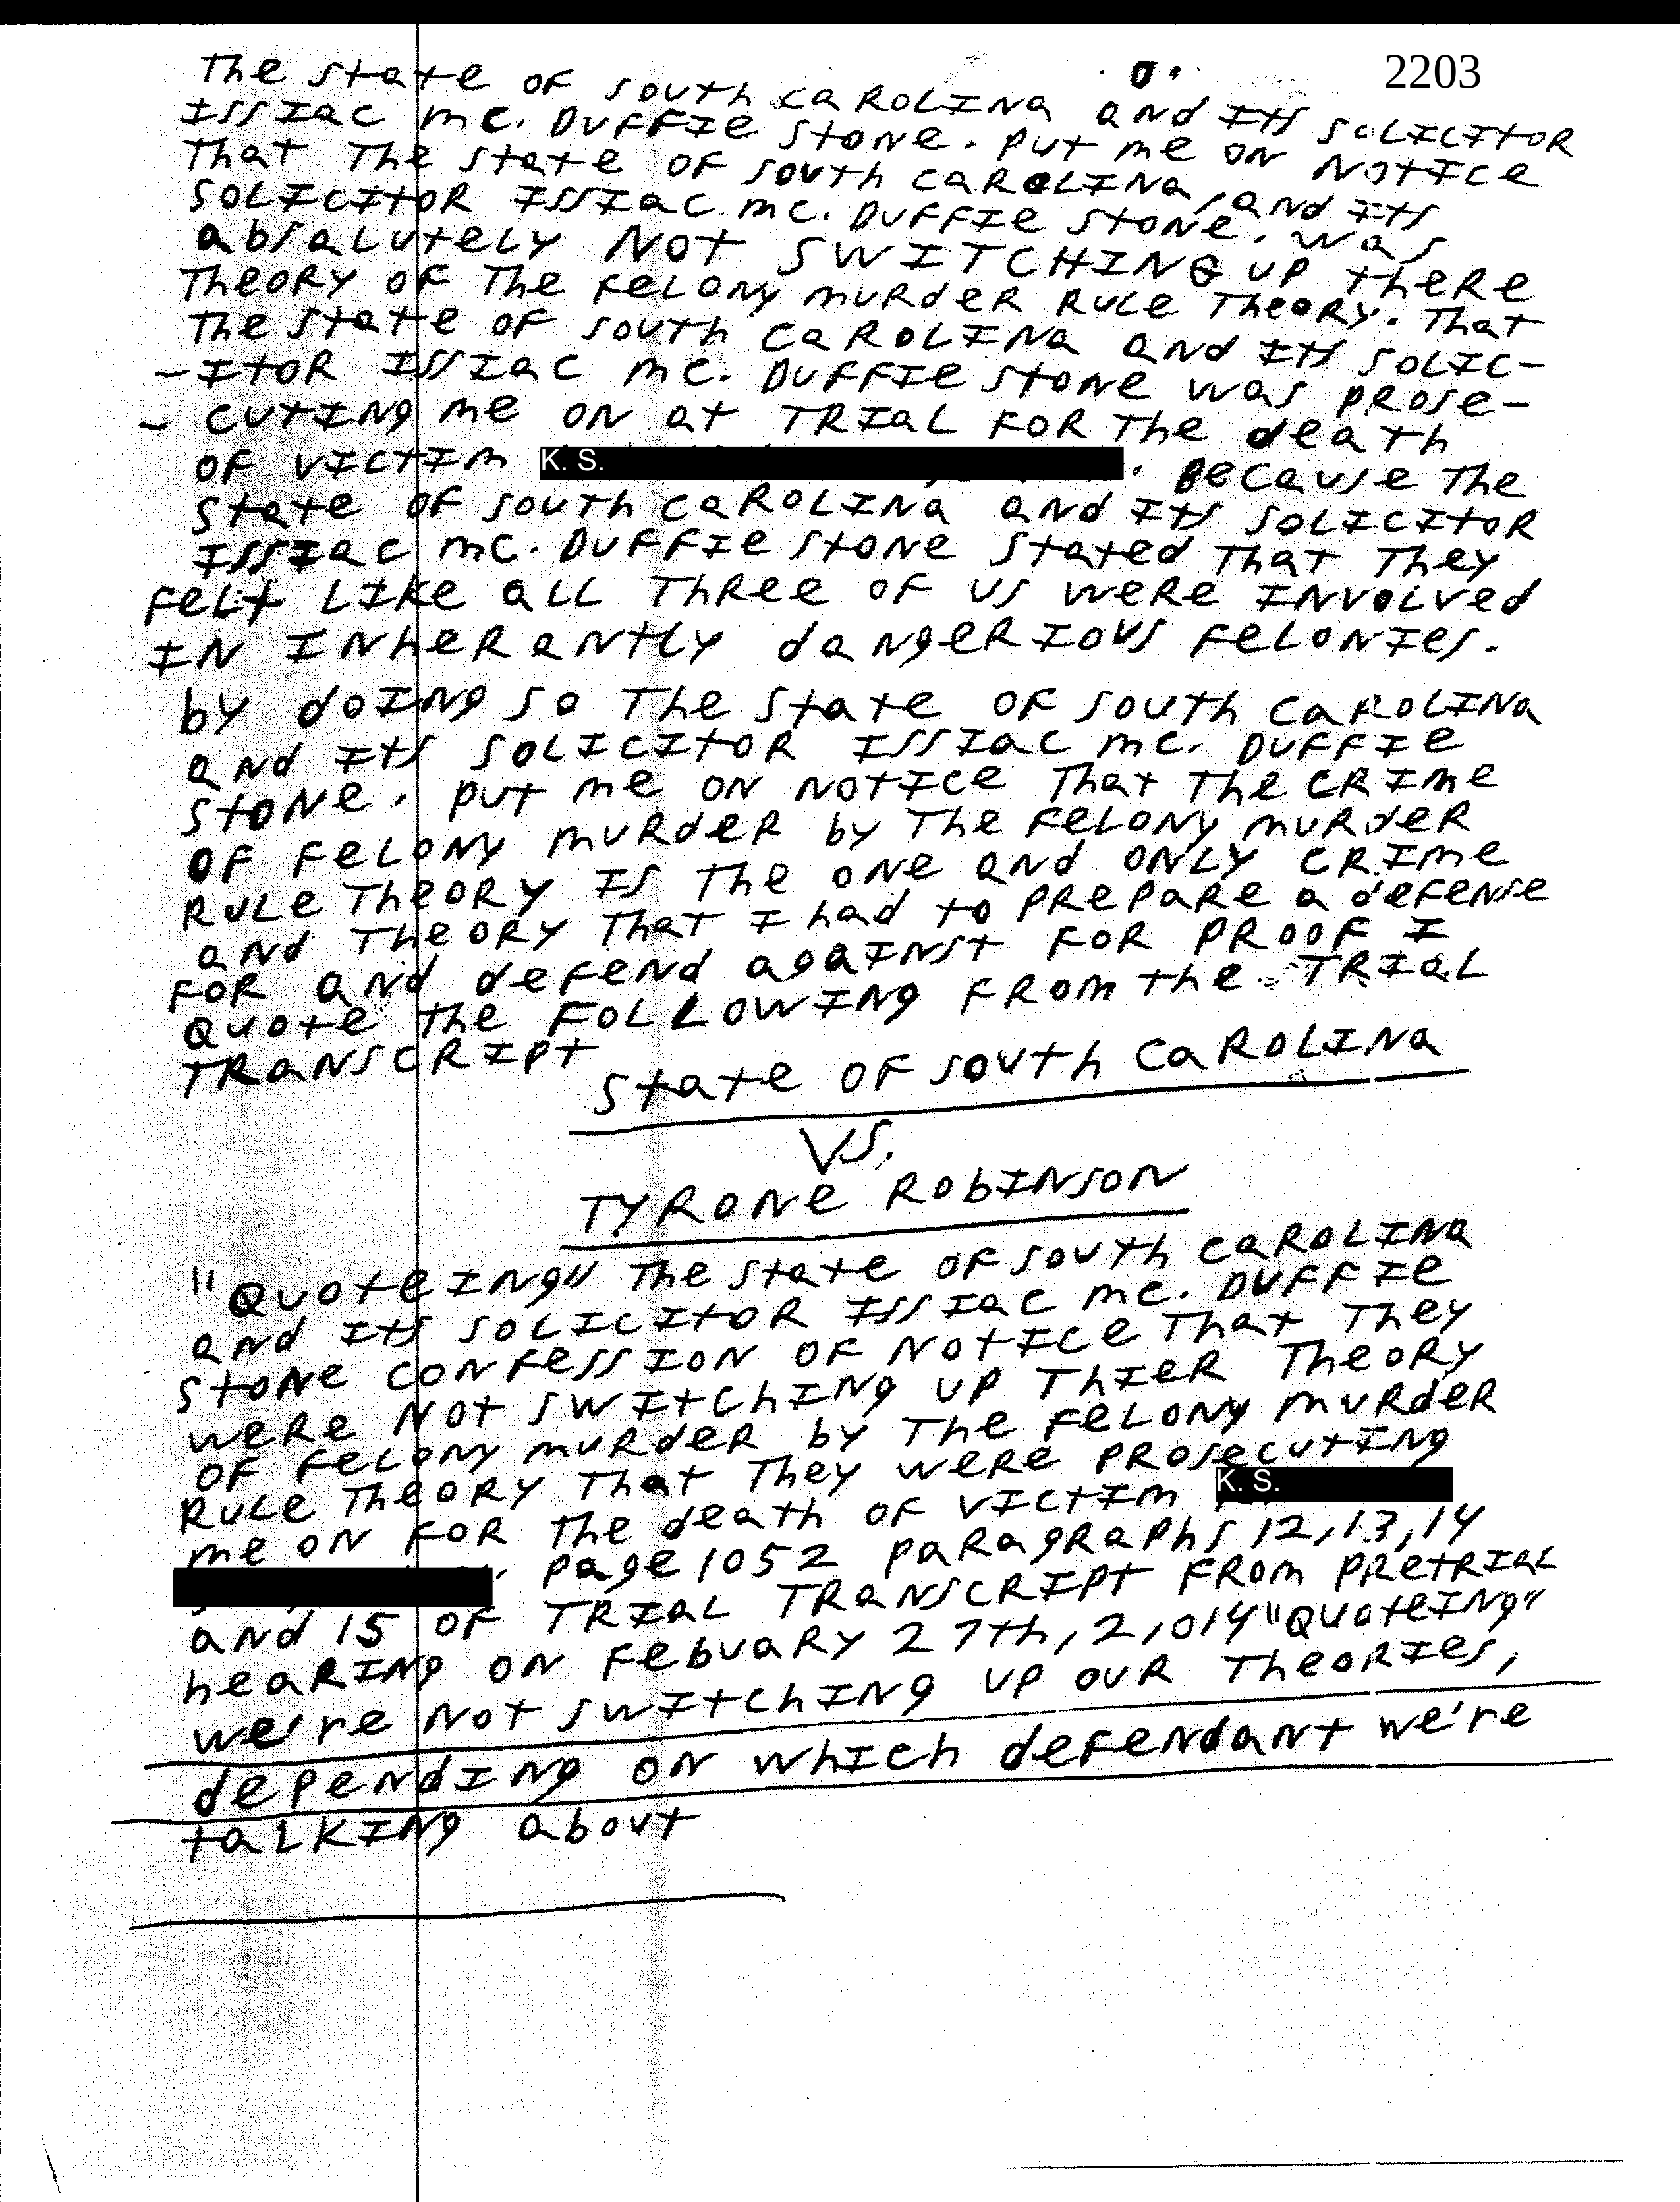 2203
O.
The state of south caROLINa and Its soLICItOR
ISSIac mc. DuffIe stone. put me on Notice
That The state of south caROLINa, and Its
soLICItOR ISSIac mc. DuffIe stone. was
absalutely Not SWITCHING up there
Theory of The feLony murder Rule Theory. That
The state of south caROLINa and Its soLIC-
-ItOR ISSIac mc. DuffIe stone was prose-
- cuting me on at TRIaL for the death
of victim K. S. . Because the
state of south caROLINa and Its soLICItOR
ISSIac mc. DuffIe stone stated That They
felt Like aLL Three of us were Involved
In Inherantly dangerious feLonies.
by doing so The state of south caROLINa
and Its soLICItOR ISSIac mc. DuffIe
stone. put me on notice That The crime
of feLony murder by The feLony murder
Rule Theory Is The one and only crime
and Theory That I had to prepare a defense
for and defend against for proof I
Quote the following from the TRIaL
TRaNSCRIpt
state of south caROLINa
VS.
TYRONe RobINSON
"Quoteing" The state of south caROLINa
and Its soLICItOR ISSIac mc. DuffIe
stone confession of notice That They
were Not switching up Thier Theory
of feLony murder by The feLony murder
Rule Theory That They were prosecuting
me on for the death of victim K. S.
. page 1052 paragraphs 12, 13, 14
and 15 of TRIaL TRaNSCRIpt from pretrial
hearing on Febuary 27th, 2,014 "Quoteing"
we're Not switching up our Theories,
depending on which defendant we're
talking about